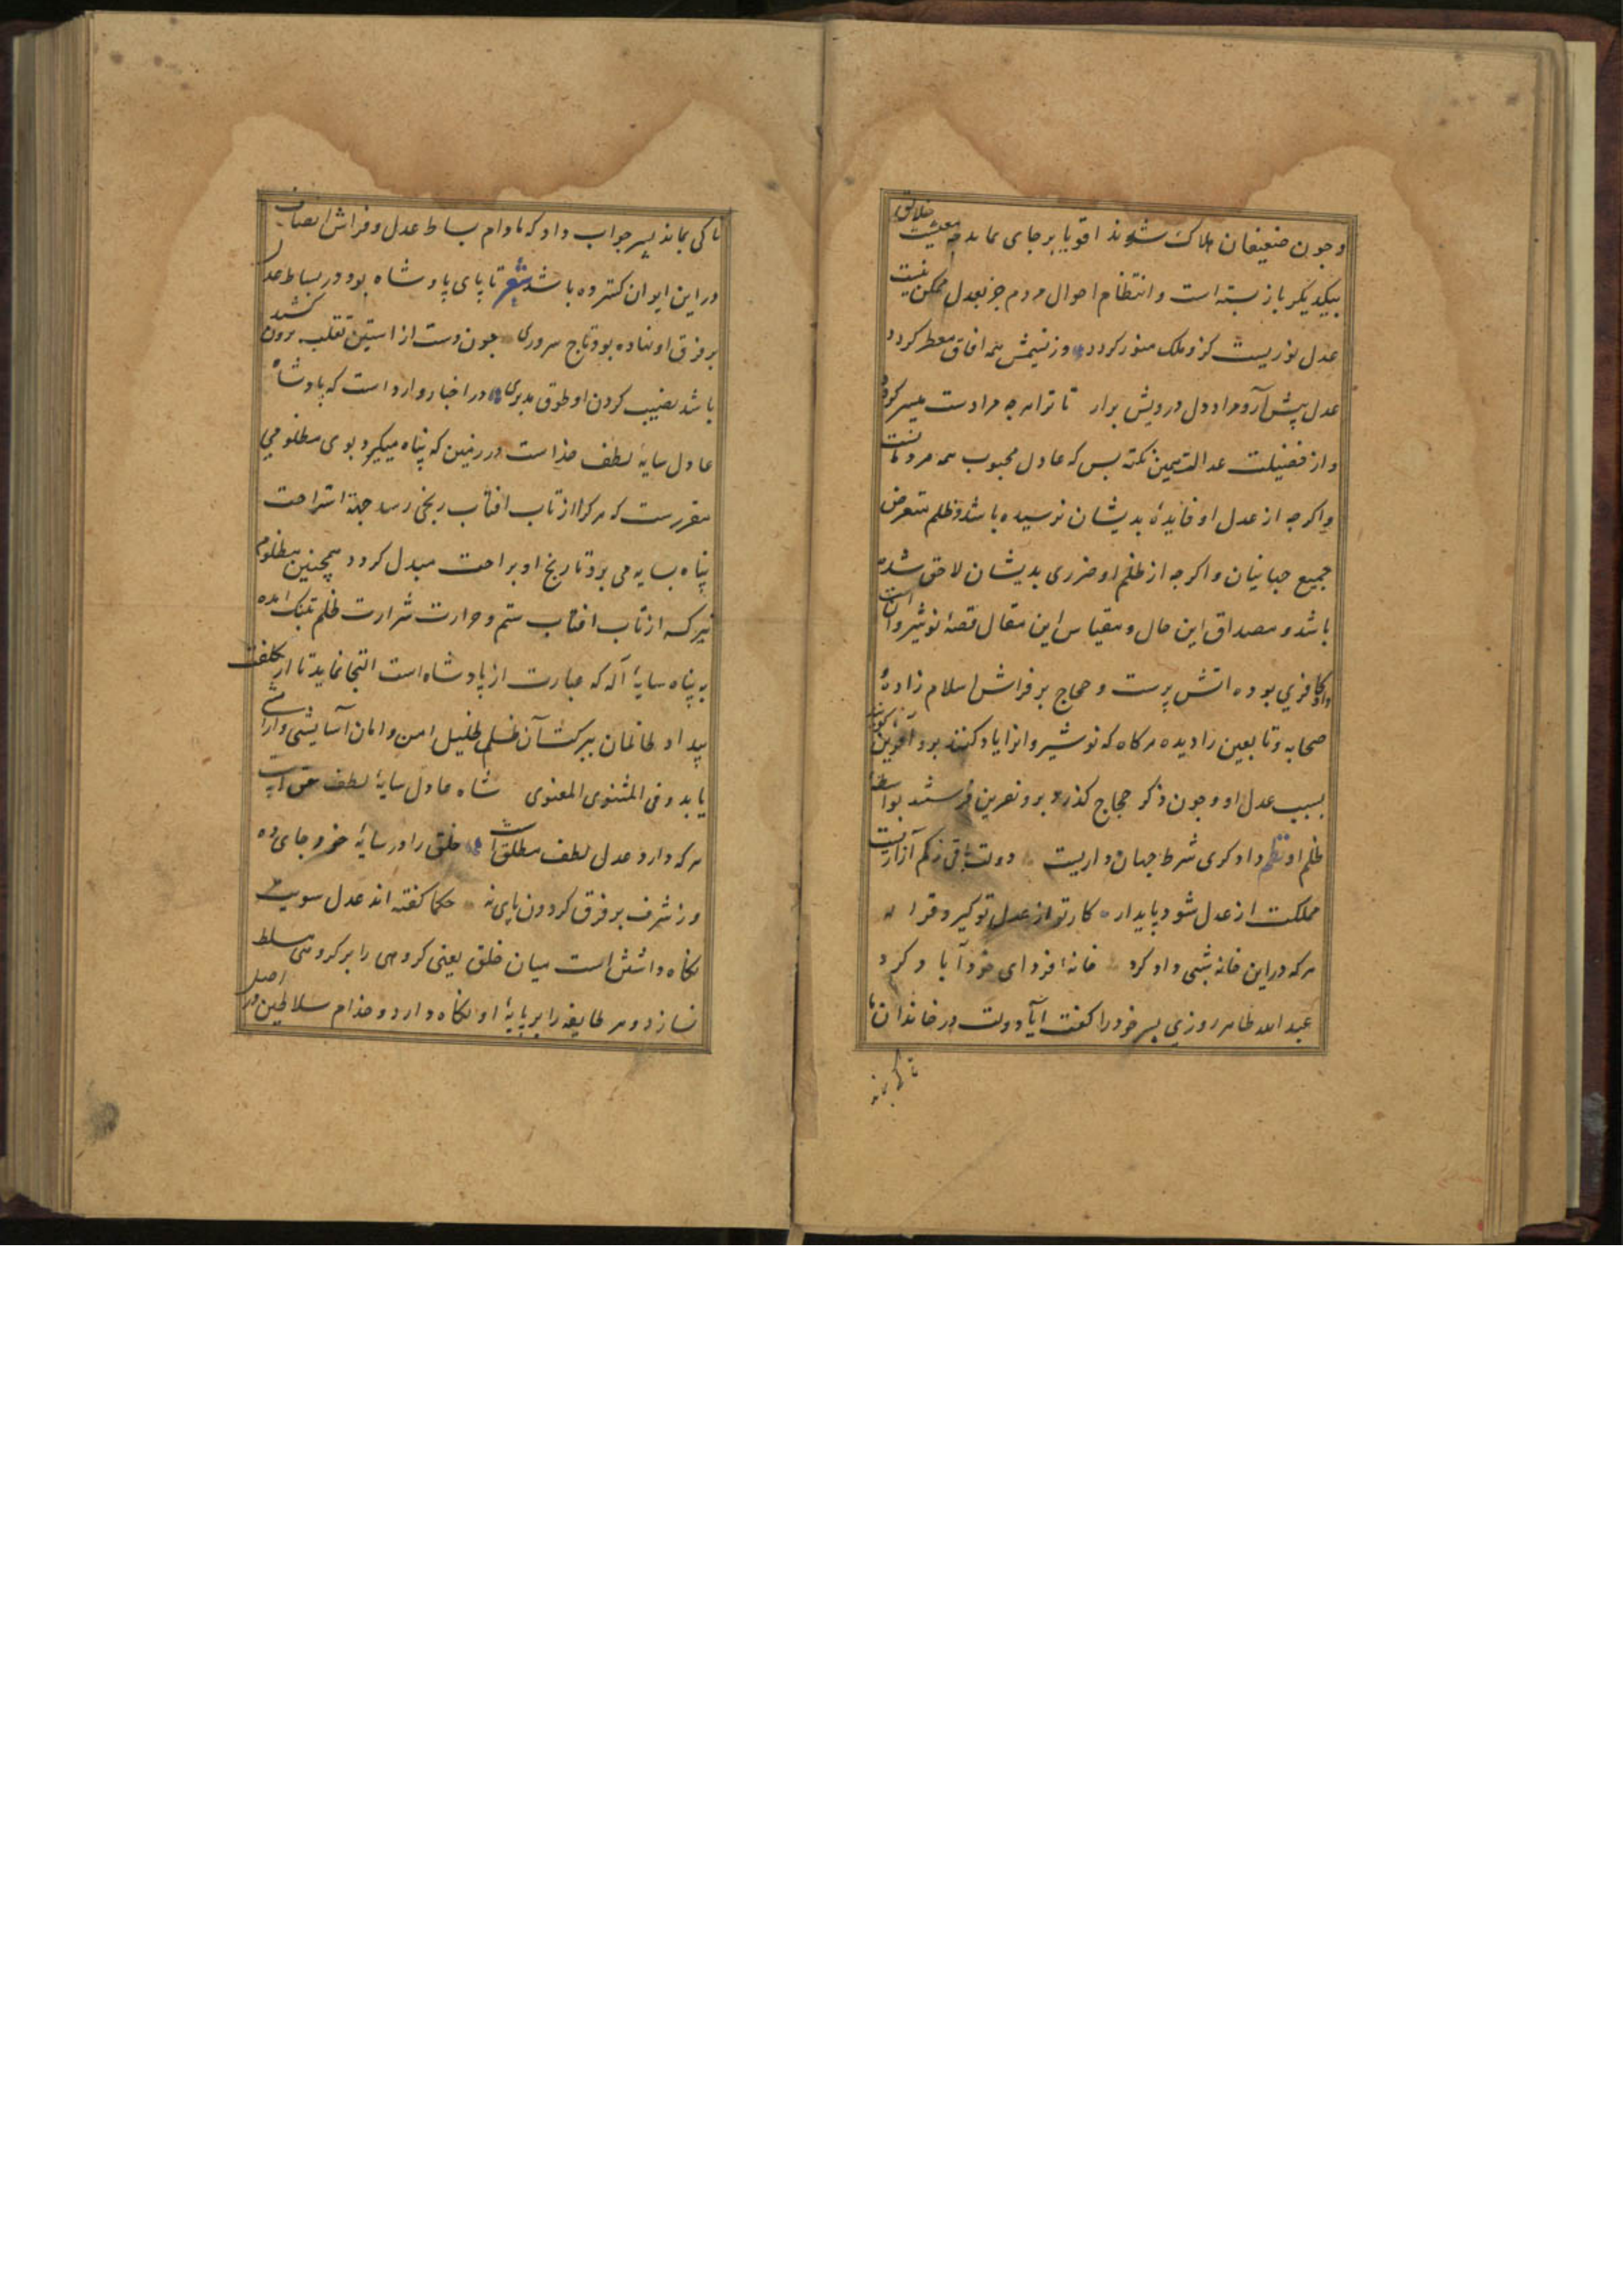 وجون ضعیفان هلاک شوند اقویا بر جای نماند چه معیشت خلایق
بیکدیکر باز بسته است و انتظام احوال مردم جز بعدل ممکن نیست
عدل نوریست کزو ملک منور کردد وز نسیمش همه افاق معطر کردد
عدل پیش آر و مراد دل درویش برار تا ترا هرچه مرادست میسر کردد
و از فضیلت عدالت همین نکته بس که عادل محبوب همه مردمانست
واکرجه از عدل او فایدهٔ بدیشان نرسیده باشد و ظلم متعرض
جمیع جهانیان واکرجه از ظلم او ضرری بدیشان لاحق نشده
باشد و مصداق این حال و مقیاس این مقال قصهٔ نوشیروان است
واو کافری بوده اتش پرست و حجاج بر فراش اسلام زاده و
صحابه و تابعین را دیده هرکاه که نوشیروانرا یاد کنند برو آفرین کویند
بسبب عدل او و جون ذکر حجاج کذرد برو نفرین فرستند بواسطهٔ
ظلم او نظم داد کری شرط جهان داریست دولت باقی ز کم آزاریست
مملکت از عدل شود پایدار کار تو از عدل تو کیرد قرار
هرکه در این خانه شبی داد کرد خانهٔ فردای خود آباد کرد
عبد الله طاهر روزی پسر خود را کفت آیا دولت در خاندان ما
تا کی بماند
تا کی بماند پسر جواب داد که مادام بساط عدل و فراش انصاف
در این ایوان کسترده باشد شعر تا پای پادشاه بود در بساط عدل
بر فرق او نهاده بود تاج سروری جون دست از استین تغلب برون کشد
باشد نصیب کردن او طوق مدبری در اخبار وارد است که پادشاه
عادل سایهٔ لطف خداست در زمین که پناه میکیرد بوی مظلومی
مقررست که هر کرا از تاب افتاب رنجی رسد جهة استراحت
پناه بسایه می برد تا رنج او براحت مبدل کردد همچنین مظلوم
نیر که از تاب افتاب ستم و حرارت شرارت ظلم بتنک امده
به پناه سایهٔ آله که عبارت از پادشاه است التجا نماید تا از کلفت
بیداد ظالمان ببرکت آن ظل ظلیل امن و امان آسایشی و آرامشی
یابد و فی المثنوی المعنوی شاه عادل سایهٔ لطف حق است
هرکه دارد عدل لطف مطلق است خلق را در سایهٔ خود جای ده
وز شرف بر فرق کردون پای نه حکما کفته اند عدل سویت
نکاه داشتن است میان خلق یعنی کروهی را بر کروهی مسلط
نسازد و هر طایفه را بر پایهٔ او نکاه دارد و خدام سلاطین در اصل